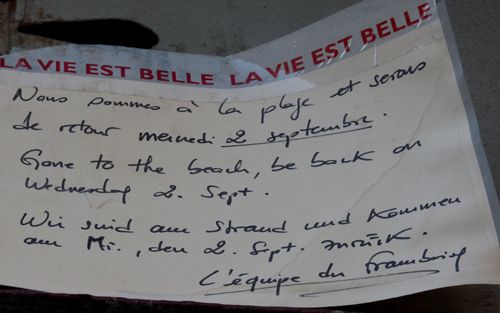 LA VIE EST BELLE LA VIE EST BELLE
Nous sommes à la plage et serons
de retour mercredi 2 septembre.
Gone to the beach, be back on
Wednesday 2. Sept.
Wir sind am Strand und kommen
am Mi., den 2. Sept. zurück.
L'équipe du Framboisy